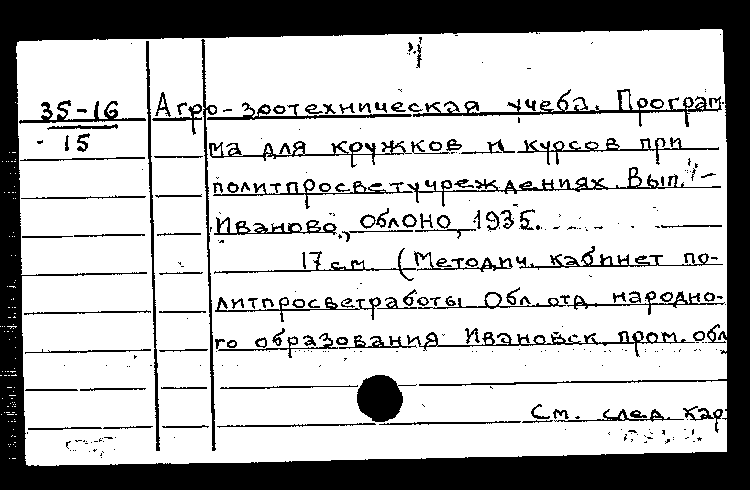 35-16
15
Агро-зоотехническая учеба. Програм-
ма для кружков и курсов при
политпросветучреждениях. Вып. 1-
Иваново, облоно, 1935.
17 см. (Методич. кабинет по-
литпросветработы Обл. отд. народно-
го образования Ивановск. пром. обл
См. след. кар